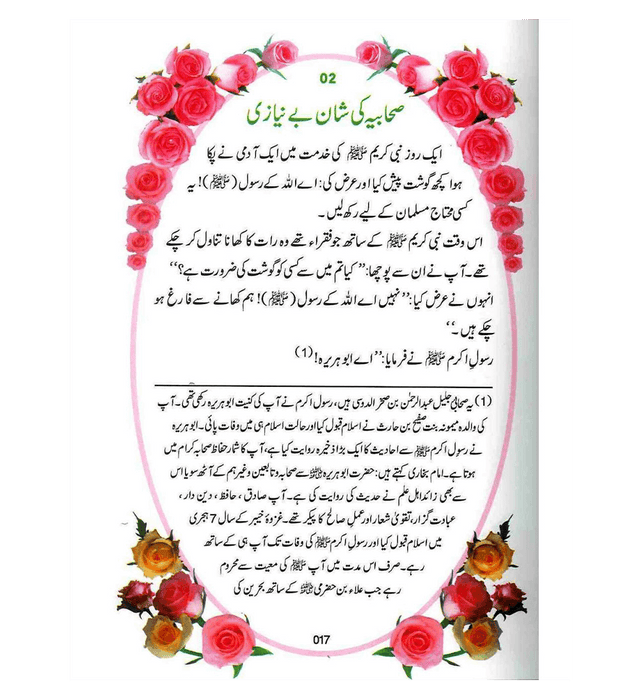 02
صحابیہ کی شان بے نیازی
ایک روز نبی کریم ﷺ کی خدمت میں ایک آدمی نے پکا
ہوا کچھ گوشت پیش کیا اور عرض کی: اے اللہ کے رسول (ﷺ)! یہ
کسی محتاج مسلمان کے لیے رکھ لیں۔
اس وقت نبی کریم ﷺ کے ساتھ جو فقراء تھے وہ رات کا کھانا تناول کر چکے
تھے۔ آپ نے ان سے پوچھا: ’’کیا تم میں سے کسی کو گوشت کی ضرورت ہے؟‘‘
انہوں نے عرض کیا: ’’نہیں اے اللہ کے رسول (ﷺ)! ہم کھانے سے فارغ ہو
چکے ہیں۔‘‘
رسولِ اکرم ﷺ نے فرمایا: ’’اے ابو ہریرہ! (1)
(1) یہ صحابیٔ جلیل عبدالرحمٰن بن صخر الدوسی ہیں، رسول اکرم نے آپ کی کنیت ابو ہریرہ رکھی تھی۔ آپ
کی والدہ میمونہ بنت صفیح بن حارث نے اسلام قبول کیا اور حالت اسلام ہی میں وفات پائی۔ ابو ہریرہ
نے رسول اکرم ﷺ سے احادیث کا ایک بڑا ذخیرہ روایت کیا ہے، آپ کا شمار حفاظ صحابہ کرام میں
ہوتا ہے۔ امام بخاری کہتے ہیں: حضرت ابو ہریرہ ؓ سے صحابہ و تابعین وغیرہم کے آٹھ سو یا اس
سے بھی زائد اہل علم نے حدیث کی روایت کی ہے۔ آپ صادق، حافظ، دین دار،
عبادت گزار، تقویٰ شعار اور عمل صالح کا پیکر تھے۔ غزوۂ خیبر کے سال 7 ہجری
میں اسلام قبول کیا اور رسول اکرم ﷺ کی وفات تک آپ ہی کے ساتھ
رہے۔ صرف اس مدت میں آپ ﷺ کی معیت سے محروم
رہے جب علاء بن حضرمی ؓ کے ساتھ بحرین کی
017